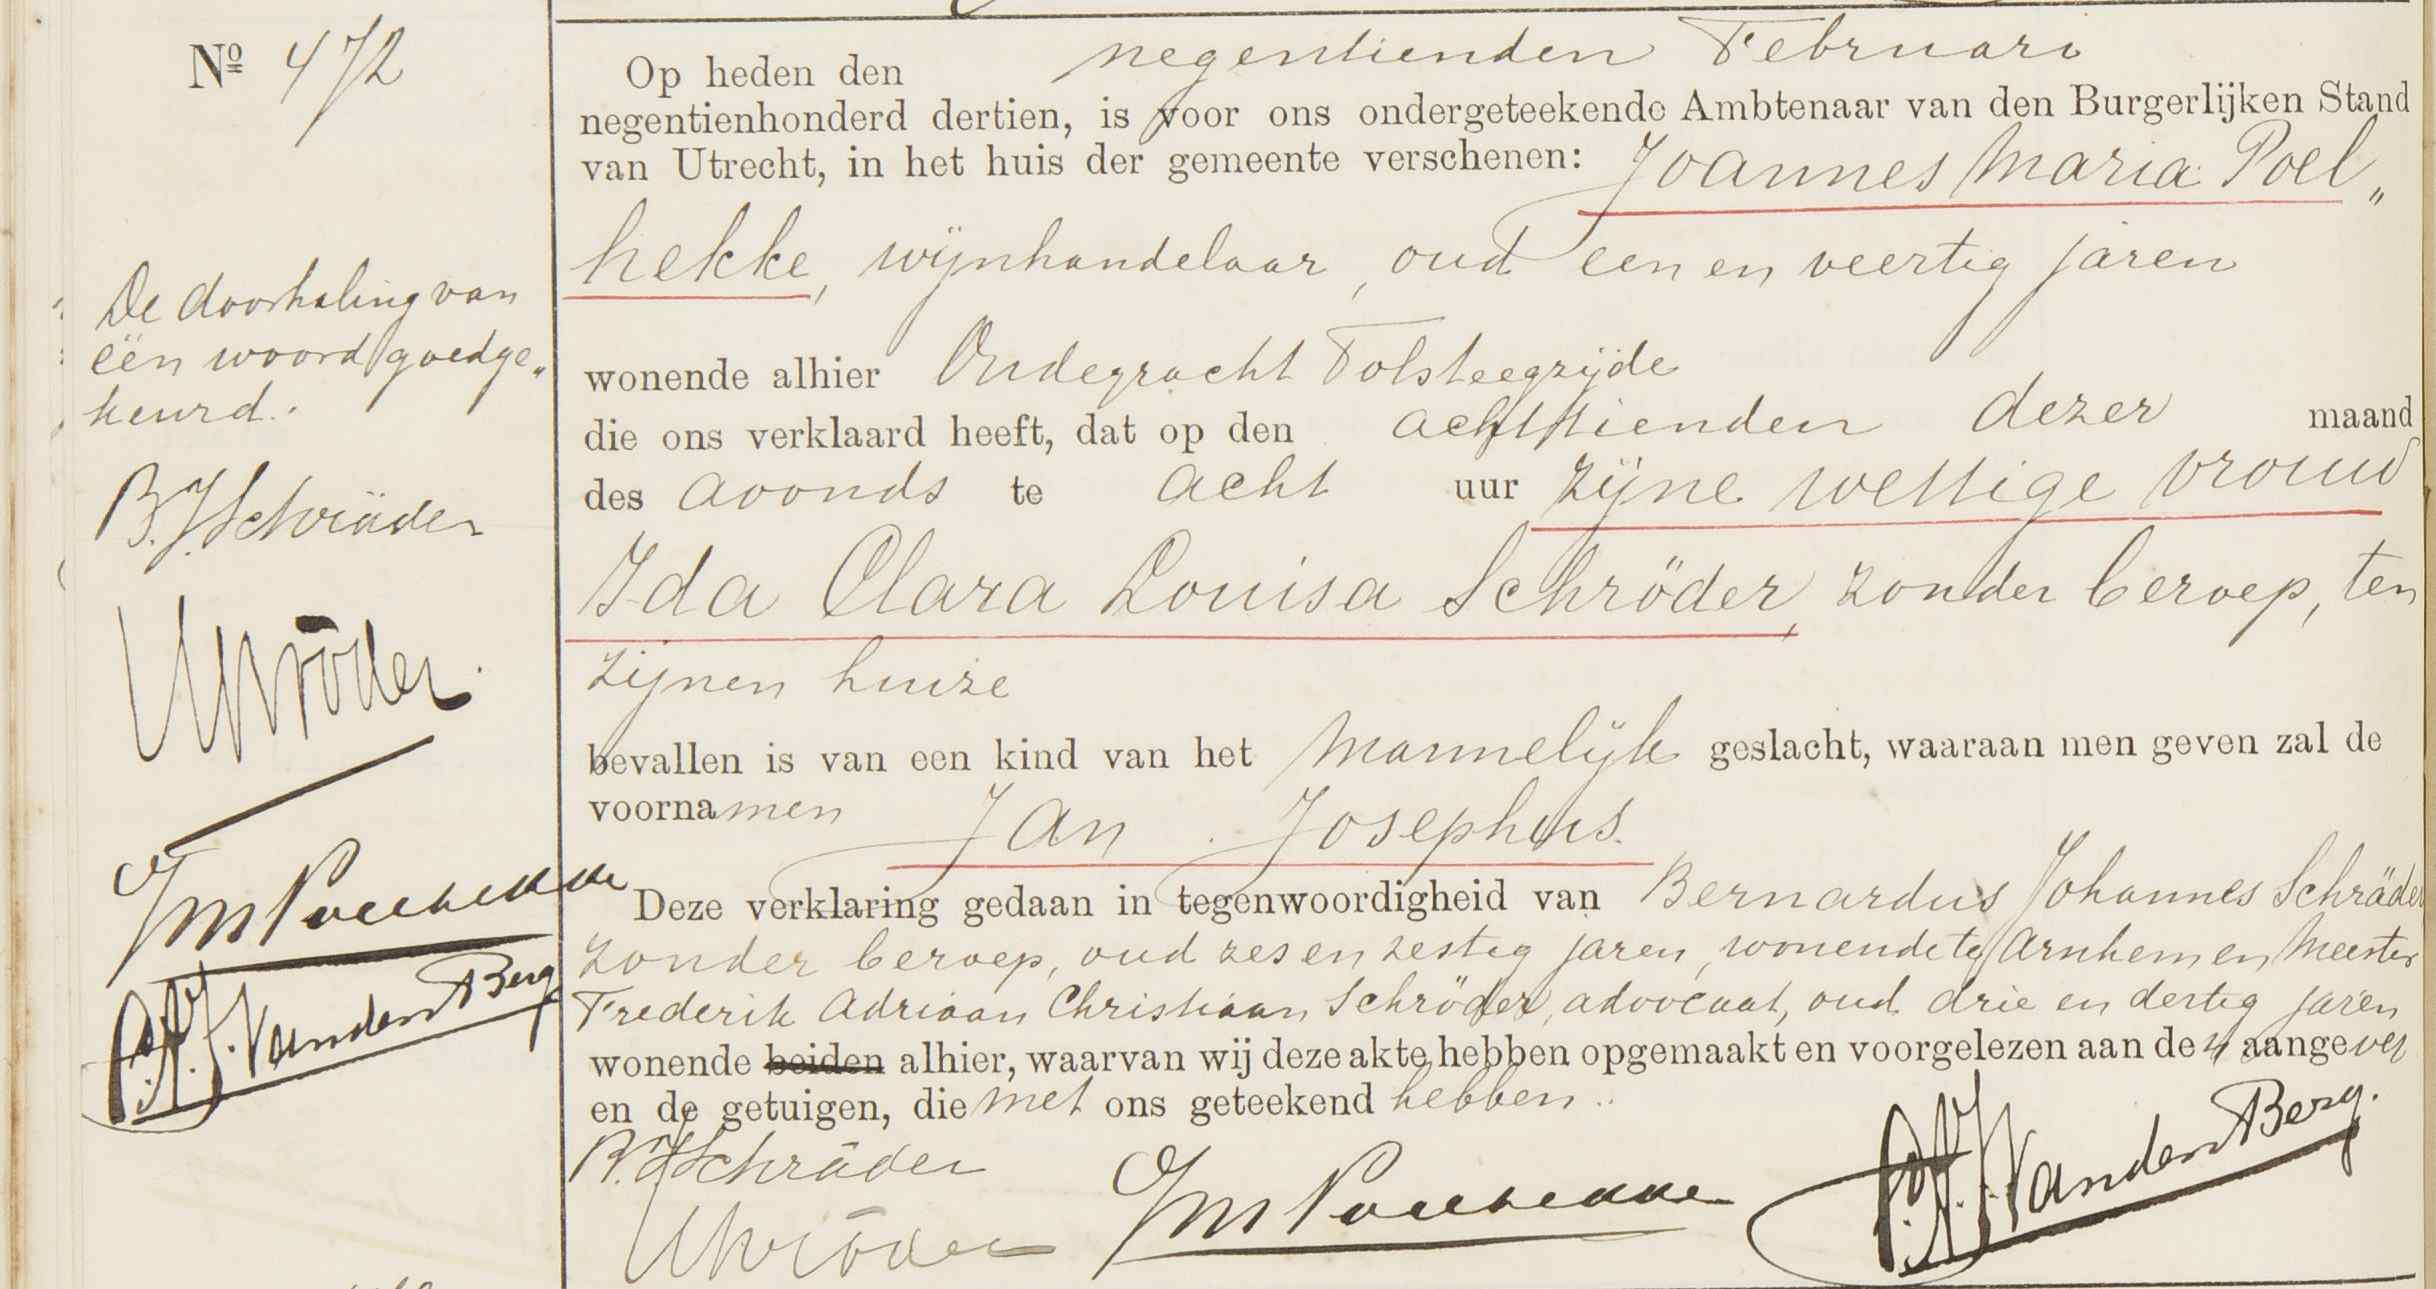 Nº 472
De doorhaling van
één woord goedge„
keurd.
B.J. Schräder
Schröder.
JM Poelhekke
P.A.J. Van den Berg
Op heden den negentienden Februari
negentienhonderd dertien, is voor ons ondergeteekende Ambtenaar van den Burgerlijken Stand
van Utrecht, in het huis der gemeente verschenen: Joannes Maria Poel„
hekke, wijnhandelaar, oud een en veertig jaren
wonende alhier Oudegracht Tolsteegzijde
die ons verklaard heeft, dat op den achttienden dezer maand
des avonds te acht uur zijne wettige vrouw
Ida Clara Louisa Schröder, zonder beroep, ten
zijnen huize
bevallen is van een kind van het mannelijk geslacht, waaraan men geven zal de
voornamen Jan Josephus.
Deze verklaring gedaan in tegenwoordigheid van Bernardus Johannes Schräder
zonder beroep, oud zes en zestig jaren, wonende te Arnhem en Meester
Frederik Adriaan Christiaan Schröder, advocaat, oud drie en dertig jaren
wonende beiden alhier, waarvan wij deze akte hebben opgemaakt en voorgelezen aan den aangever
en de getuigen, die met ons geteekend hebben..
B.J. Schräder
Schröder
JM Poelhekke
P.A.J. Van den Berg.